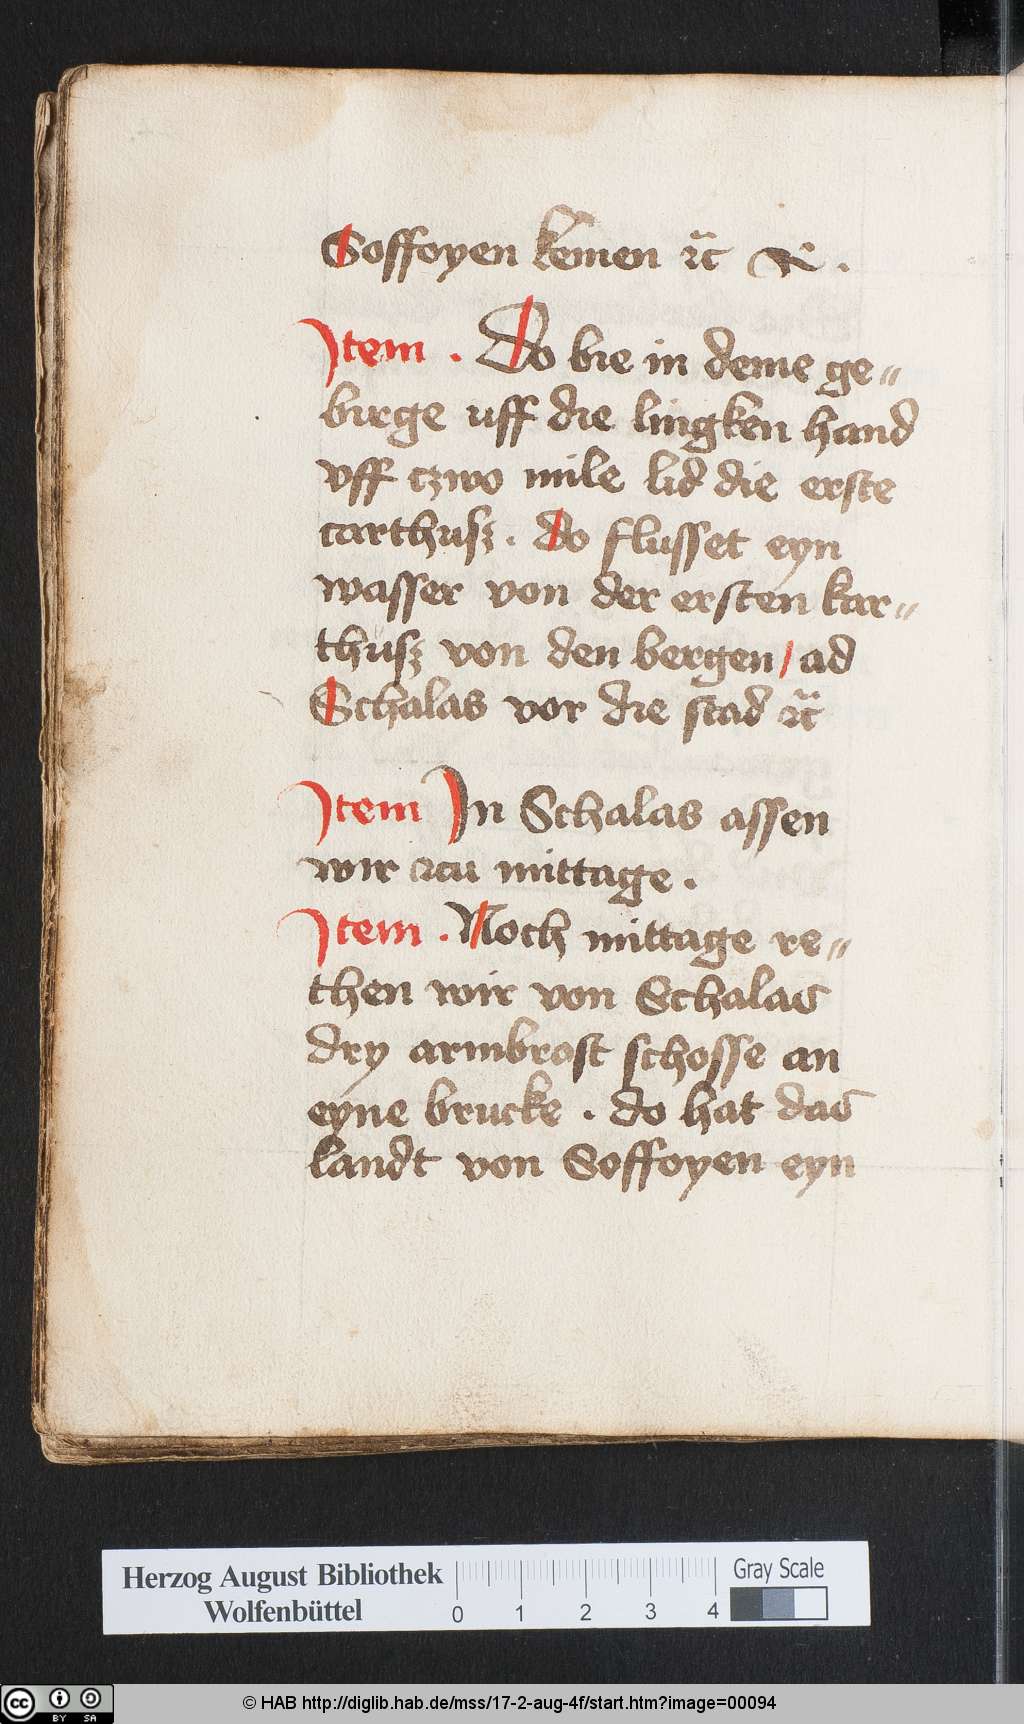 Soffoyen kemen ꝛc̃ ꝛc .
Item . Do bie in deme ge„
birge uff die lingken hand
vff czwo mile lid die erste
carthusz . do flusset eyn
wasser von der ersten kar„
thusz von den bergen / ad
Schalas vor die stad ꝛc̃
Item In Schalas assen
wir czu mittage .
Item . Noch mittage re„
then wir von Schalas
dry armbrost schosse an
eyne brucke . do hat das
landt von Soffoyen eyn
Herzog August Bibliothek
Wolfenbüttel
0 1 2 3 4
Gray Scale
cc BY SA
© HAB http://diglib.hab.de/mss/17-2-aug-4f/start.htm?image=00094